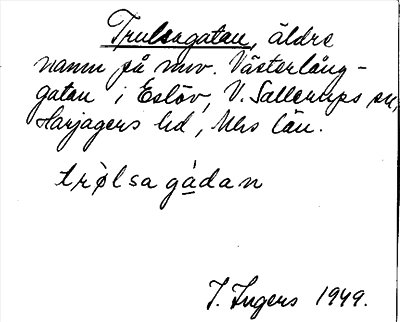 Trulsagatan, äldre
namn på nuv. Västerlång-
gatan i Eslöv, V. Sallerups sn,
Harjagers hd, Mhs län.
trølsa gádan
J. Ingers 1949.